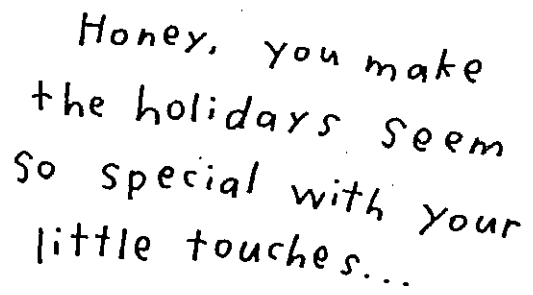 Honey, you make
the holidays seem
so special with your
little touches...